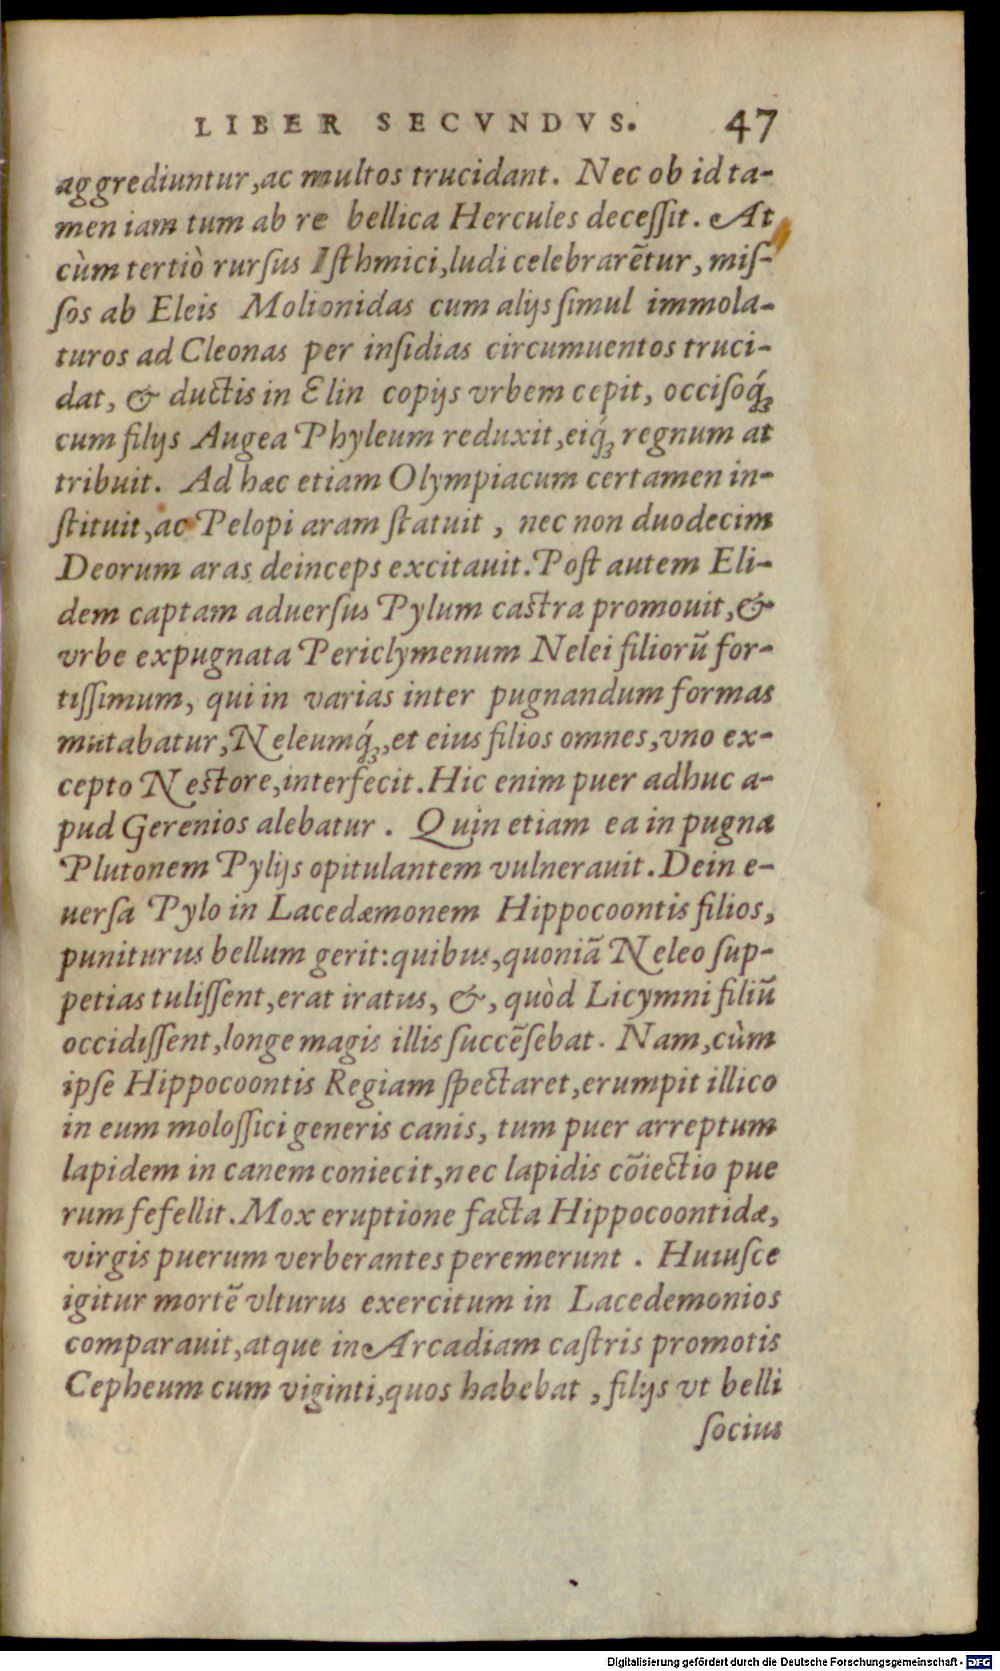 LIBER SECVNDVS. 47
aggrediuntur, ac multos trucidant. Nec ob id ta-
men iam tum ab re bellica Hercules deceſſit. At
cùm tertiò rurſus Iſthmici, ludi celebrarẽtur, miſ-
ſos ab Eleis Molionidas cum alijs ſimul immola-
turos ad Cleonas per inſidias circumuentos truci-
dat, & ductis in Elin copijs vrbem cepit, occiſoq́ꝫ
cum filijs Augea Phyleum reduxit, eiq́ꝫ regnum at
tribuit. Ad hæc etiam Olympiacum certamen in-
ſtituit, ac Pelopi aram ſtatuit, nec non duodecim
Deorum aras deinceps excitauit. Poſt autem Eli-
dem captam aduerſus Pylum caſtra promouit, &
vrbe expugnata Periclymenum Nelei filiorũ for-
tiſſimum, qui in varias inter pugnandum formas
mutabatur, Neleumq́ꝫ, et eius filios omnes, vno ex-
cepto Neſtore, interfecit. Hic enim puer adhuc a-
pud Gerenios alebatur. Quin etiam ea in pugna
Plutonem Pylijs opitulantem vulnerauit. Dein e-
uerſa Pylo in Lacedæmonem Hippocoontis filios,
puniturus bellum gerit: quibus, quoniã Neleo ſup-
petias tuliſſent, erat iratus, &, quòd Licymni filiũ
occidiſſent, longe magis illis ſuccẽſebat. Nam, cùm
ipſe Hippocoontis Regiam ſpectaret, erumpit illico
in eum moloſſici generis canis, tum puer arreptum
lapidem in canem coniecit, nec lapidis cõiectio pue
rum fefellit. Mox eruptione facta Hippocoontidæ,
virgis puerum verberantes peremerunt. Huiuſce
igitur mortẽ vlturus exercitum in Lacedemonios
comparauit, atque in Arcadiam caſtris promotis
Cepheum cum viginti, quos habebat, filijs vt belli
ſocius
Digitalisierung gefördert durch die Deutsche Forschungsgemeinschaft - DFG